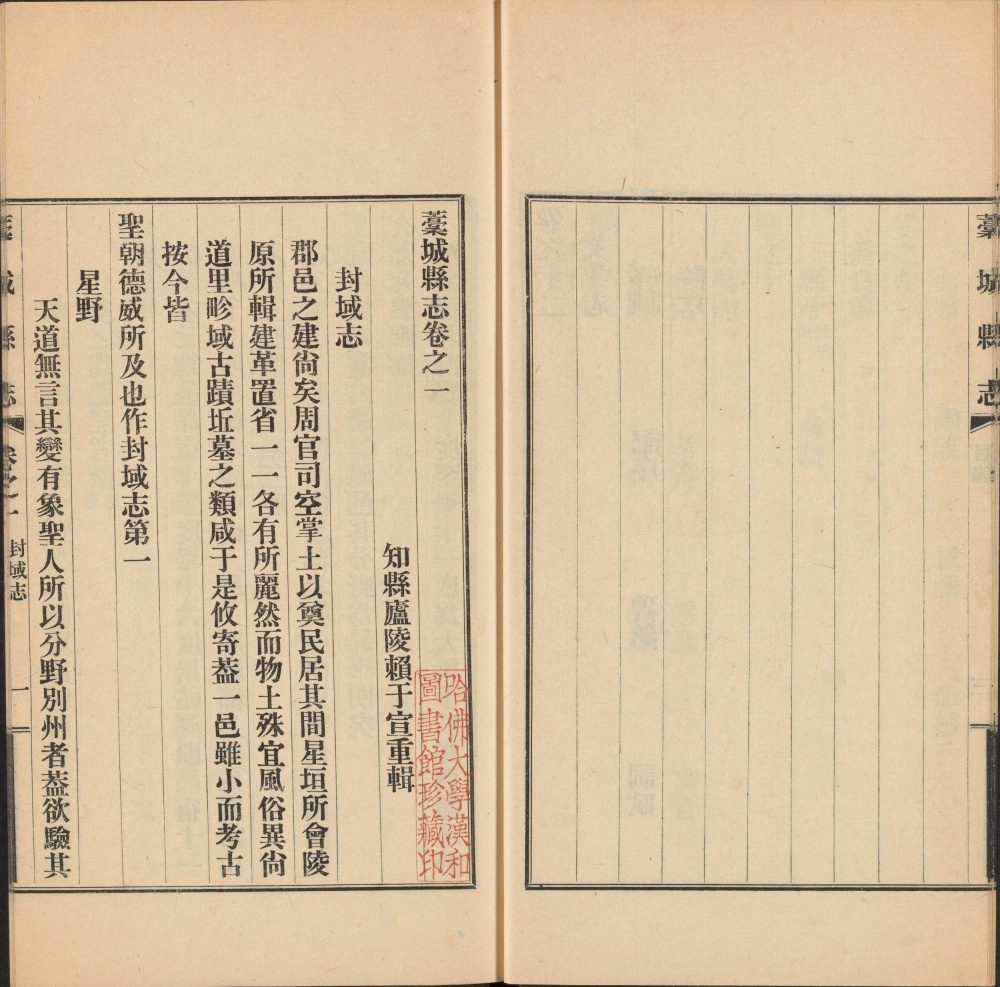 藁城縣志
藁城縣志卷之一
知縣廬陵賴于宣重輯
哈佛大學漢和
圖書館珍藏印
封域志
郡邑之建尙矣周官司空掌土以奠民居其間星垣所會陵
原所輯建革置省一一各有所麗然而物土殊宜風俗異尙
道里畛域古蹟坵墓之類咸于是攸寄葢一邑雖小而考古
按今皆
聖朝德威所及也作封域志第一
星野
天道無言其變有象聖人所以分野別州者葢欲驗其
藁城縣志 卷之一 封域志 一